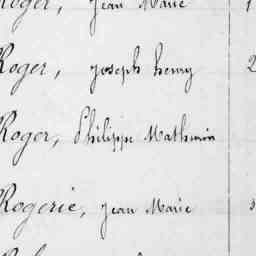 Roger, Jean Marie 1
Roger, Joseph henry 2
Roger, Philippe Mathurin
Rogerie, Jean Marie